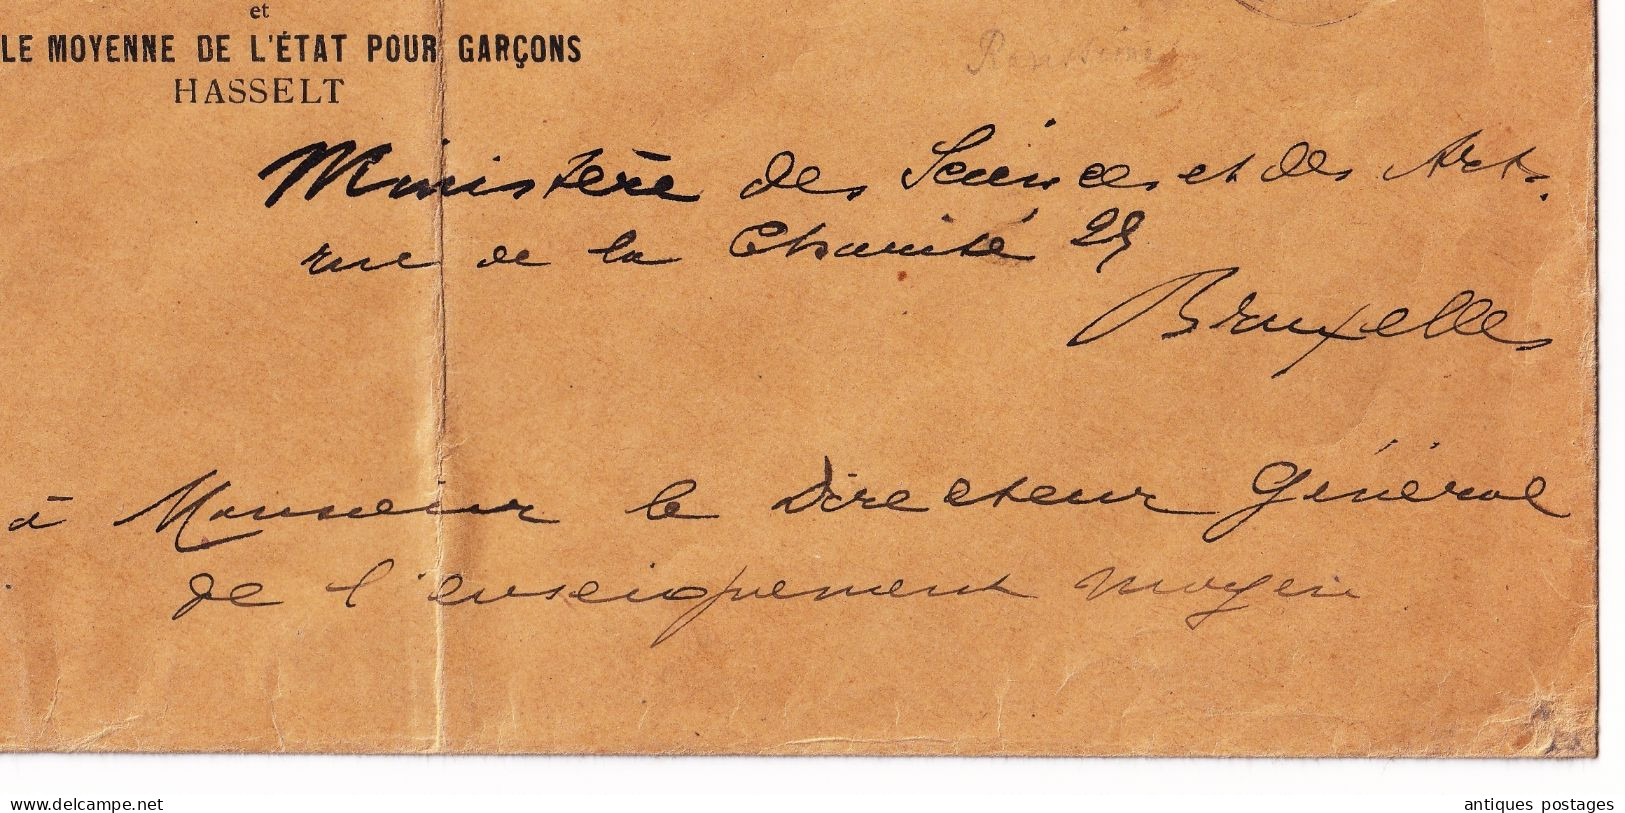 et
LE MOYENNE DE L'ÉTAT POUR GARÇONS
HASSELT
Ministère des Sciences et des Arts.
rue de la Charité 25
Bruxelles
à Monsieur le Directeur Général
de l'enseignement moyen
www.delcampe.net
antiques postages